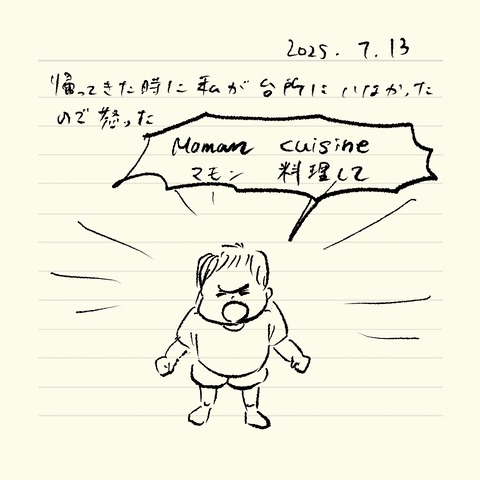 2025. 7. 13
帰ってきた時に私が台所にいなかった
ので怒った
Moman cuisine
マモン 料理して